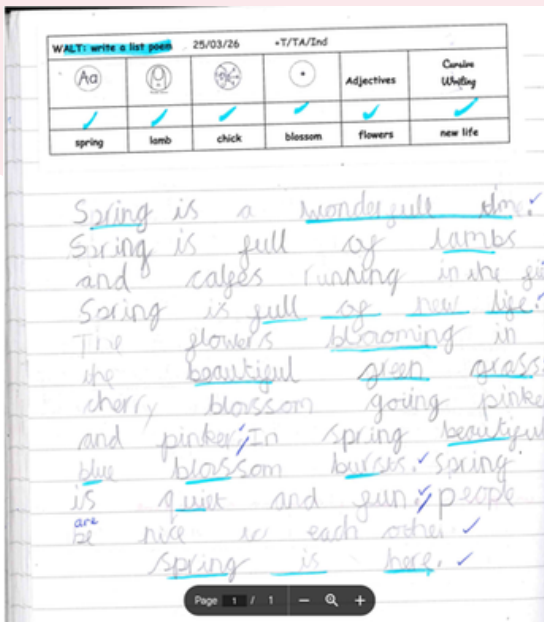 WALT: write a list poem 25/03/26 =T/TA/Ind
Aa Adjectives Cursive Writing
spring lamb chick blossom flowers new life
Spring is a wonderfull time.
Spring is full of lambs
and calfes running in the
Spring is full of new life.
The flowers blooming in
the beautiful green grass.
cherry blossom going pinker
and pinker. In spring beautiful
blue blossom bursts. Spring
is quiet and fun. people
are
be nice to each other
spring is here.
Page 1 / 1